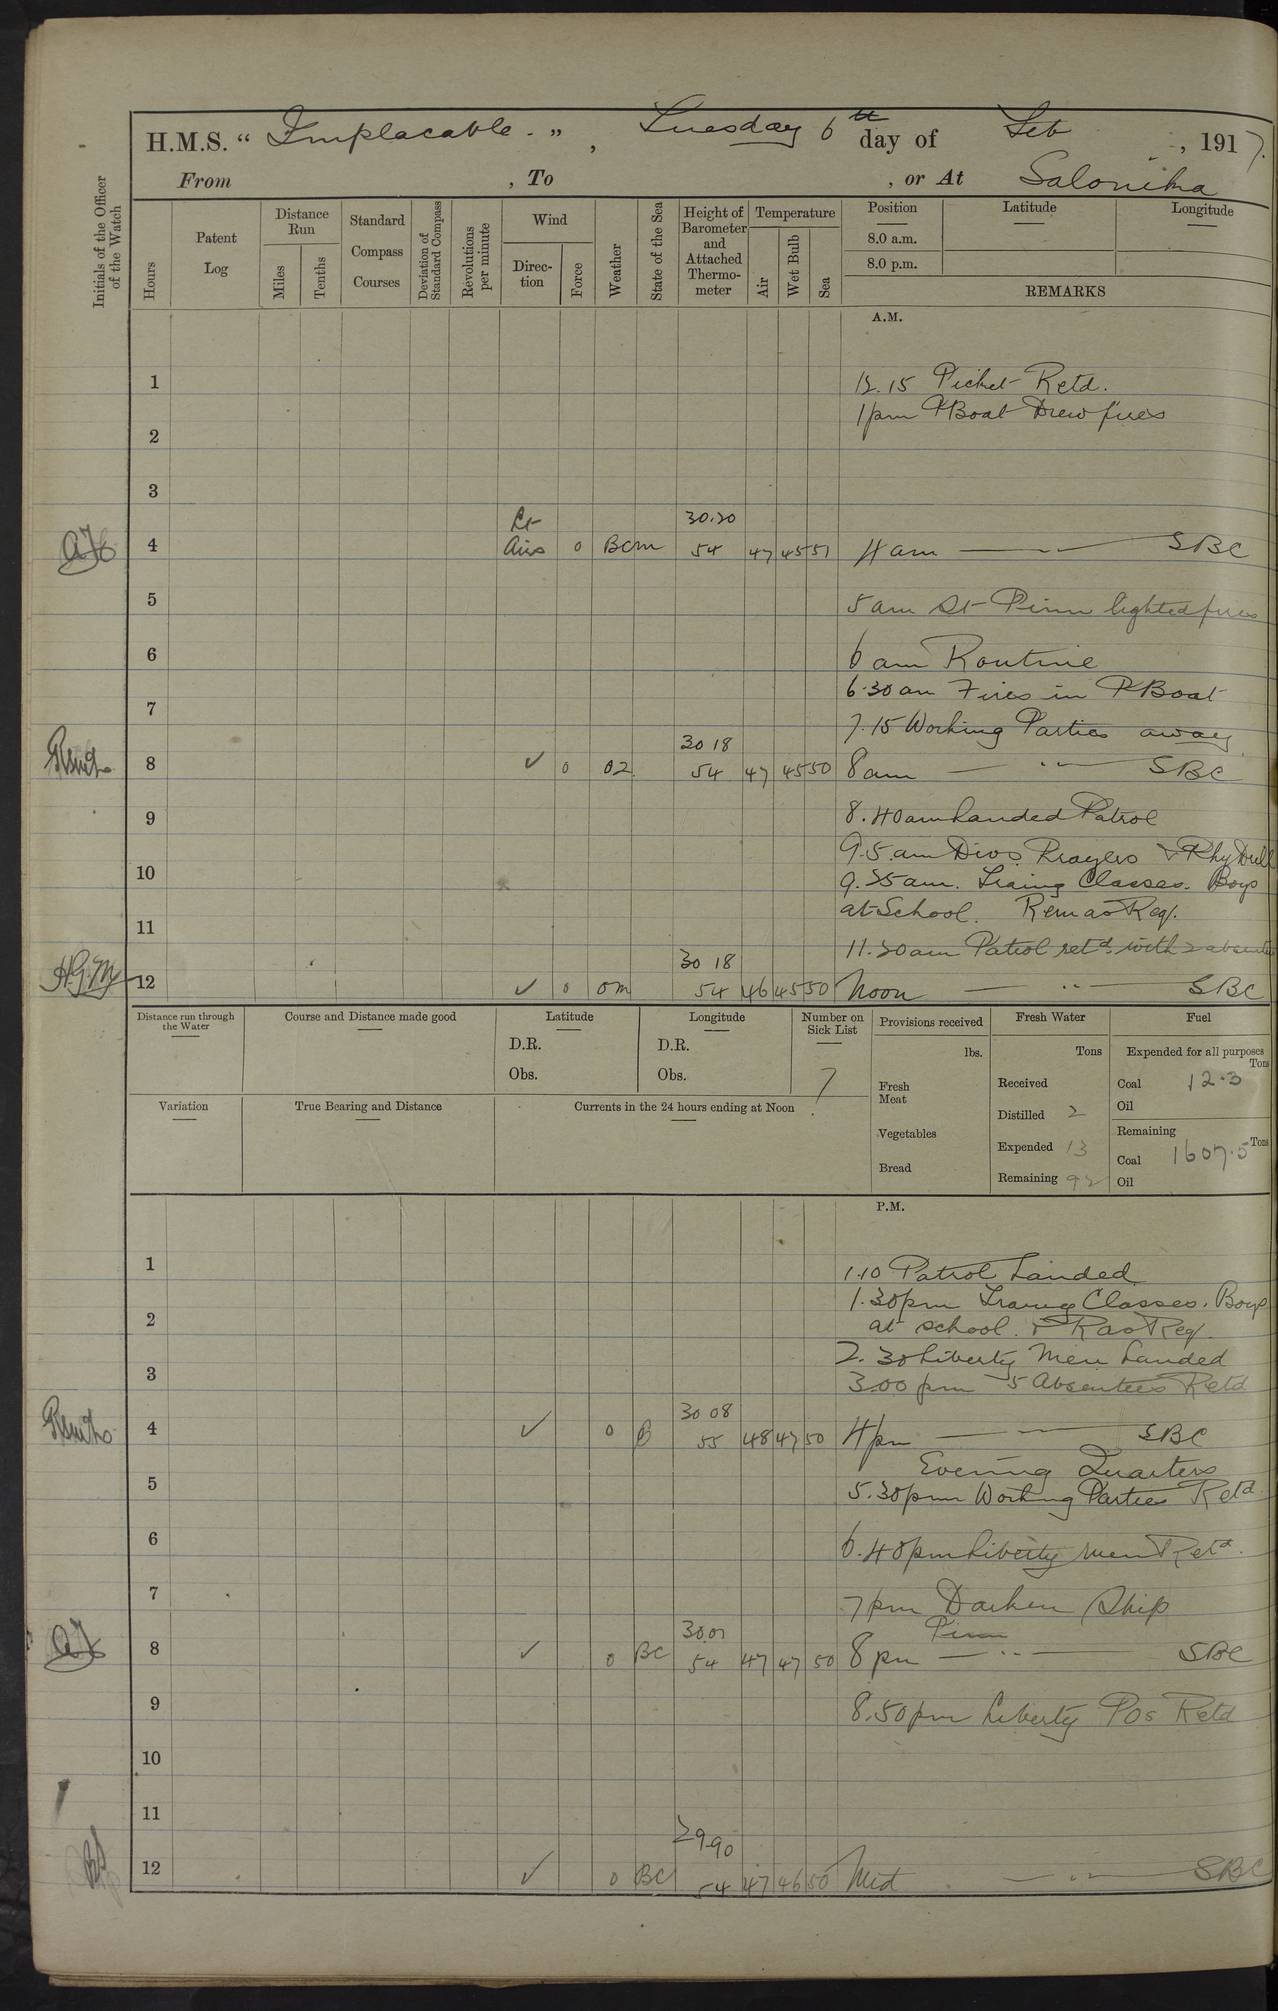 H.M.S. "Implacable.", Tuesday 6th day of Feb, 1917.
From , To , or At Salonika
Initials of the Officer of the Watch
Hours
Patent Log
Distance Run
Miles
Tenths
Standard Compass Courses
Deviation of Standard Compass
Revolutions per minute
Wind
Direction
Force
Weather
State of the Sea
Height of Barometer and Attached Thermometer
Temperature
Air
Wet Bulb
Sea
Position
Latitude
Longitude
8.0 a.m.
8.0 p.m.
REMARKS
A.M.
1 12.15 Picket Retd.
1pm PBoat Drew fires
2
3
Lt 30.20
4 Airs 0 Bcm 54 47 45 51 4am — SBC
5 5am St Pinn lighted fires
6 6am Routine
6.30am Fires in PBoat
7 7.15 Working Parties away
30 18
8 ✓ 0 02 54 47 45 50 8am — " — SBC
9 8.40am Landed Patrol
9.5.am Divs. Prayers & Phy Drill
10 9.25am. Traing Classes. Boys
at School. Rem as Req.
11
11.20am Patrol retd. with 2 absentees
30 18
H.G.M 12 ✓ 0 om 54 46 45 50 Noon — " — SBC
Distance run through the Water
Course and Distance made good
Latitude
D.R.
Obs.
Longitude
D.R.
Obs.
Number on Sick List
7
Provisions received
lbs.
Fresh Meat
Vegetables
Bread
Fresh Water
Tons
Received
Distilled 2
Expended 13
Remaining 92
Fuel
Expended for all purposes
Tons
Coal 12.3
Oil
Remaining
Tons
Coal 1607.5
Oil
Variation
True Bearing and Distance
Currents in the 24 hours ending at Noon
P.M.
1 1.10 Patrol Landed
1.30pm Traing Classes. Boys
2 at school. & R as Req.
2.30 Liberty Men Landed
3 3.00 pm 5 Absentees Retd
30 08
4 ✓ 0 B 55 48 47 50 4pm — SBC
Evening Quarters
5 5.30pm Working Parties Retd
6 6.40pm Liberty men Retd.
7 7pm Darken Ship
30.01 Pinn
8 ✓ 0 BC 54 47 47 50 8pm — " — SBC
9 8.50pm Liberty POs Retd
10
11
29.90
12 ✓ 0 BC 54 47 46 50 Mid — " — SBC